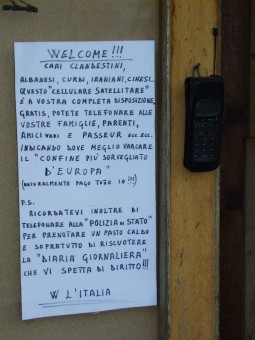 WELCOME!!!
CARI CLANDESTINI,
ALBANESI, CURDI, IRANIANI, CINESI..
QUESTO "CELLULARE SATELLITARE"
È A VOSTRA COMPLETA DISPOSIZIONE,
GRATIS, POTETE TELEFONARE ALLE
VOSTRE FAMIGLIE, PARENTI,
AMICI VARI E PASSEUR ECC.ECC.
INDICANDO DOVE MEGLIO VARCARE
IL "CONFINE PIÙ SORVEGLIATO
D'EUROPA"
(NATURALMENTE PAGO TUTTO IO!!!)
P.S.
RICORDATEVI INOLTRE DI
TELEFONARE ALLA "POLIZIA DI STATO"
PER PRENOTARE UN PASTO CALDO
E SOPRATUTTO DI RISCUOTERE
LA "DIARIA GIORNALIERA"
CHE VI SPETTA DI DIRITTO!!!
W L'ITALIA